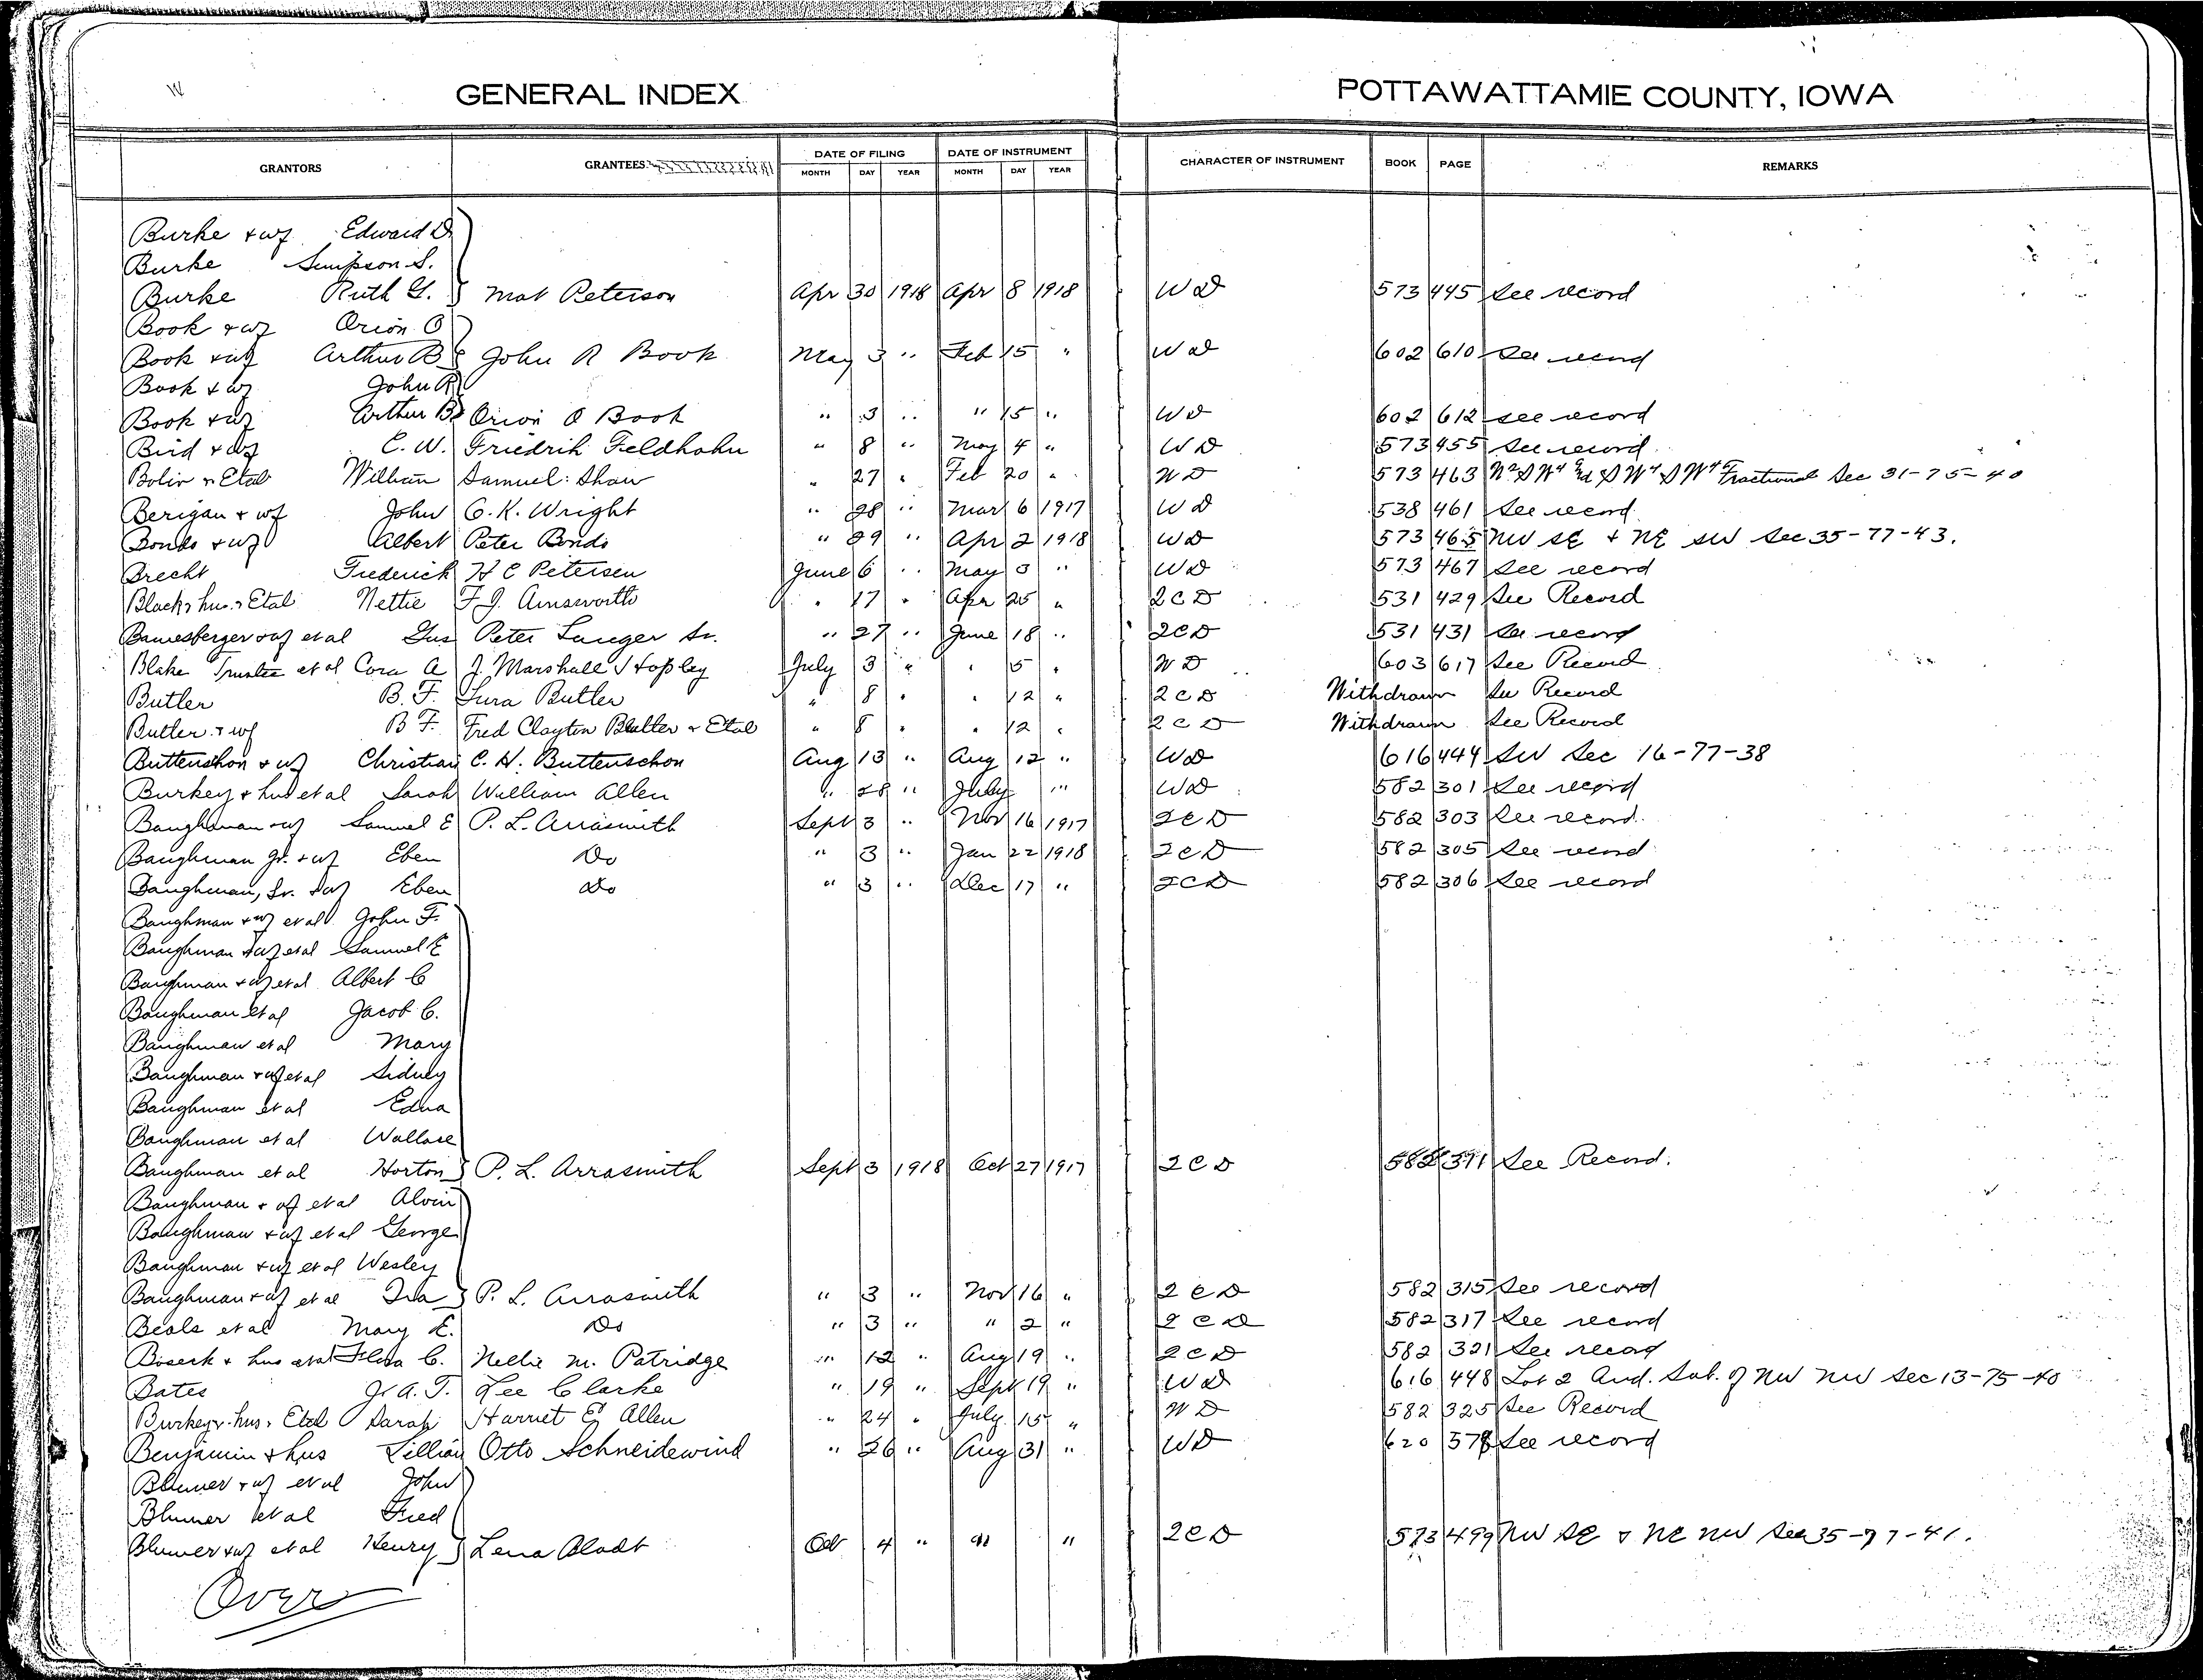 GENERAL INDEX POTTAWATTAMIE COUNTY, IOWA
GRANTORS GRANTEES DATE OF FILING DATE OF INSTRUMENT CHARACTER OF INSTRUMENT BOOK PAGE REMARKS
MONTH DAY YEAR MONTH DAY YEAR
Burke + wf Edward D.
Burke Simpson S.
Burke Ruth G. Mat Peterson Apr 30 1918 Apr 8 1918 WD 573 445 See record
Book + wf Orion O
Book + wf Arthur B John R Book May 3 " Feb 15 " WD 602 610 See record
Book + wf John R
Book + wf Arthur B Orion O Book " 3 " " 15 " WD 602 612 see record
Bird + wf C. W. Friedrik Feldhahn " 8 " May 4 " WD 573 455 See record
Bolin + Etal William Samuel Shaw " 27 " Feb 20 " WD 573 463 N² SW⁴ & SW⁴ SW⁴ Fractional Sec 31-75-40
Berigan + wf John C. K. Wright " 28 " Mar 6 1917 WD 538 461 See record
Bonds + wf Albert Peter Bonds " 29 " Apr 2 1918 WD 573 465 NW SE + NE SW Sec 35-77-43.
Brecht Frederick H C Petersen June 6 " May 3 " WD 573 467 See record
Black + hus. + Etal Nettie F. J. Ainsworth " 17 " Apr 25 " 2CD 531 429 See Record
Bamesberger + wf et al Gus Peter Langer Sr. " 27 " June 18 " 2CD 531 431 See record
Blake Trustee et al Cora A J. Marshall Hopley July 3 " " 5 " WD 603 617 See Record
Butler B. F. Lura Butler " 8 " " 12 " 2CD Withdrawn See Record
Butler + wf B F. Fred Clayton Butler + Etal " 8 " " 12 " 2CD Withdrawn See Record
Buttenshon + wf Christian C. H. Buttenschon Aug 13 " Aug 12 " WD 616 444 SW Sec 16-77-38
Burkey + hus et al Sarah William Allen " 28 " July " WD 582 301 See record
Baughman + wf Samuel E P. L. Arrasmith Sept 3 " Nov 16 1917 2CD 582 303 See record
Baughman Jr. + wf Eben Do " 3 " Jan 22 1918 2CD 582 305 See record
Baughman, Sr. + wf Eben Do " 3 " Dec 17 " 2CD 582 306 See record
Baughman + wf et al John F.
Baughman + wf et al Samuel E
Baughman + wf et al Albert C
Baughman et al Jacob C.
Baughman et al Mary
Baughman + wf et al Sidney
Baughman et al Edna
Baughman et al Wallace
Baughman et al Horton P. L. Arrasmith Sept 3 1918 Oct 27 1917 2CD 582 311 See Record.
Baughman + wf et al Alvin
Baughman + wf et al George
Baughman + wf et al Wesley
Baughman + wf et al Ira P. L. Arrasmith " 3 " Nov 16 " 2CD 582 315 See record
Beals et al Mary E. Do " 3 " " 2 " 2CD 582 317 See record
Boseck + hus et al C. Nellie M. Patridge " 12 " Aug 19 " 2CD 582 321 See record
Bates Jr. A. T. Lee Clarke " 19 " Sept 19 " WD 616 448 Lot 2 Aud. Sub. of NW NW Sec 13-75-40
Burkey + hus. + Etal Sarah Harriet E Allen " 24 " July 15 " WD 582 325 See Record
Benjamin + hus Lillian Otto Schneidewind " 26 " Aug 31 " WD 620 578 See record
Blumer + wf et al John
Blumer et al Fred
Blumer + wf et al Henry Lena Bladt Oct 4 " " " 2CD 573 499 NW SE + NE NW Sec 35-77-41.
Over